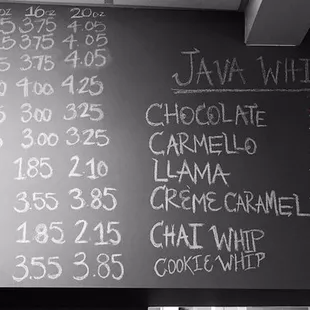 oz 16oz 20oz
5 3.75 4.05
5 3.75 4.05
5 3.75 4.05
0 4.00 4.25
0 3.00 3.25
5 3.00 3.25
1.85 2.10
3.55 3.85
1.85 2.15
3.55 3.85
JAVA WHI
CHOCOLATE
CARMELLO
LLAMA
CRÈME CARAMEL
CHAI WHIP
COOKIE WHIP